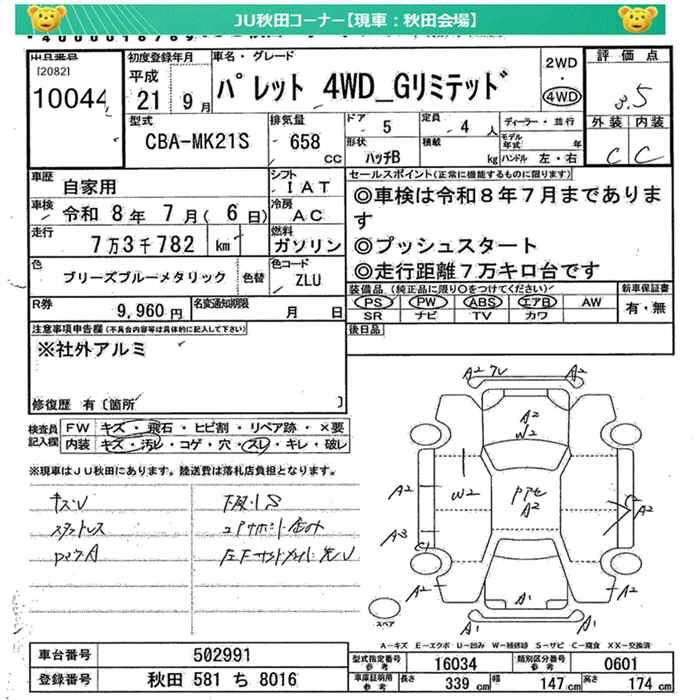 JU秋田コーナー【現車:秋田会場】
出品番号
[2082]
10044
初度登録年月
平成
21年 9月
車名・グレード
パレット 4WD_Gリミテッド
2WD
・
4WD
評価点
3.5
外装 内装
C C
型式
CBA-MK21S
排気量
658
CC
ドア
5
定員
4人
形状
ハッチB
積載
kg
ディーラー・並行
モデル年式 年
ハンドル 左・右
車歴
自家用
シフト
IAT
車検
令和 8年 7月( 6日)
冷房
AC
走行
7万3千782 km
燃料
ガソリン
色
ブリーズブルーメタリック
色替
色コード
ZLU
セールスポイント(正常に機能するものに限ります)
◎車検は令和8年7月まであります
◎プッシュスタート
◎走行距離7万キロ台です
R券
9,960円
名変通知期限
月 日
装備品(純正品に限り○をつけてください)
PS PW ABS エアB AW
SR ナビ TV カワ
新車保証書
有・無
後日品
注意事項申告欄(不具合内容等は具体的に記入して下さい)
※社外アルミ
修復歴 有〔箇所 〕
検査員記入欄
FW キズ・飛石・ヒビ割・リペア跡・×要
内装 キズ・汚レ・コゲ・穴・スレ・キレ・破レ
※現車はJU秋田にあります。陸送費は落札店負担となります。
キズU
下廻りS
A2
A2
A2
W2
A2
W2
A2
A2
A3
C1
A2
A2
A2
A1
A1
A1
スペア
A-キズ E-エクボ U-凹み W-補修跡 S-サビ C-腐食 XX-交換済
車台番号
502991
登録番号
秋田 581 ち 8016
型式指定番号
参考
16034
類別区分番号
参考
0601
車庫証明用
参考
長さ 339cm
幅 147cm
高さ 174cm